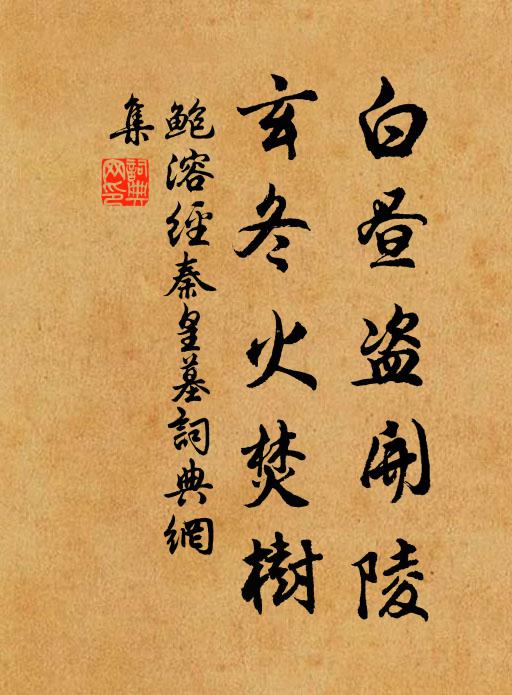 白昼盗開陵
玄冬火焚樹
鮑溶經秦皇墓詞典網
集
詞典網印